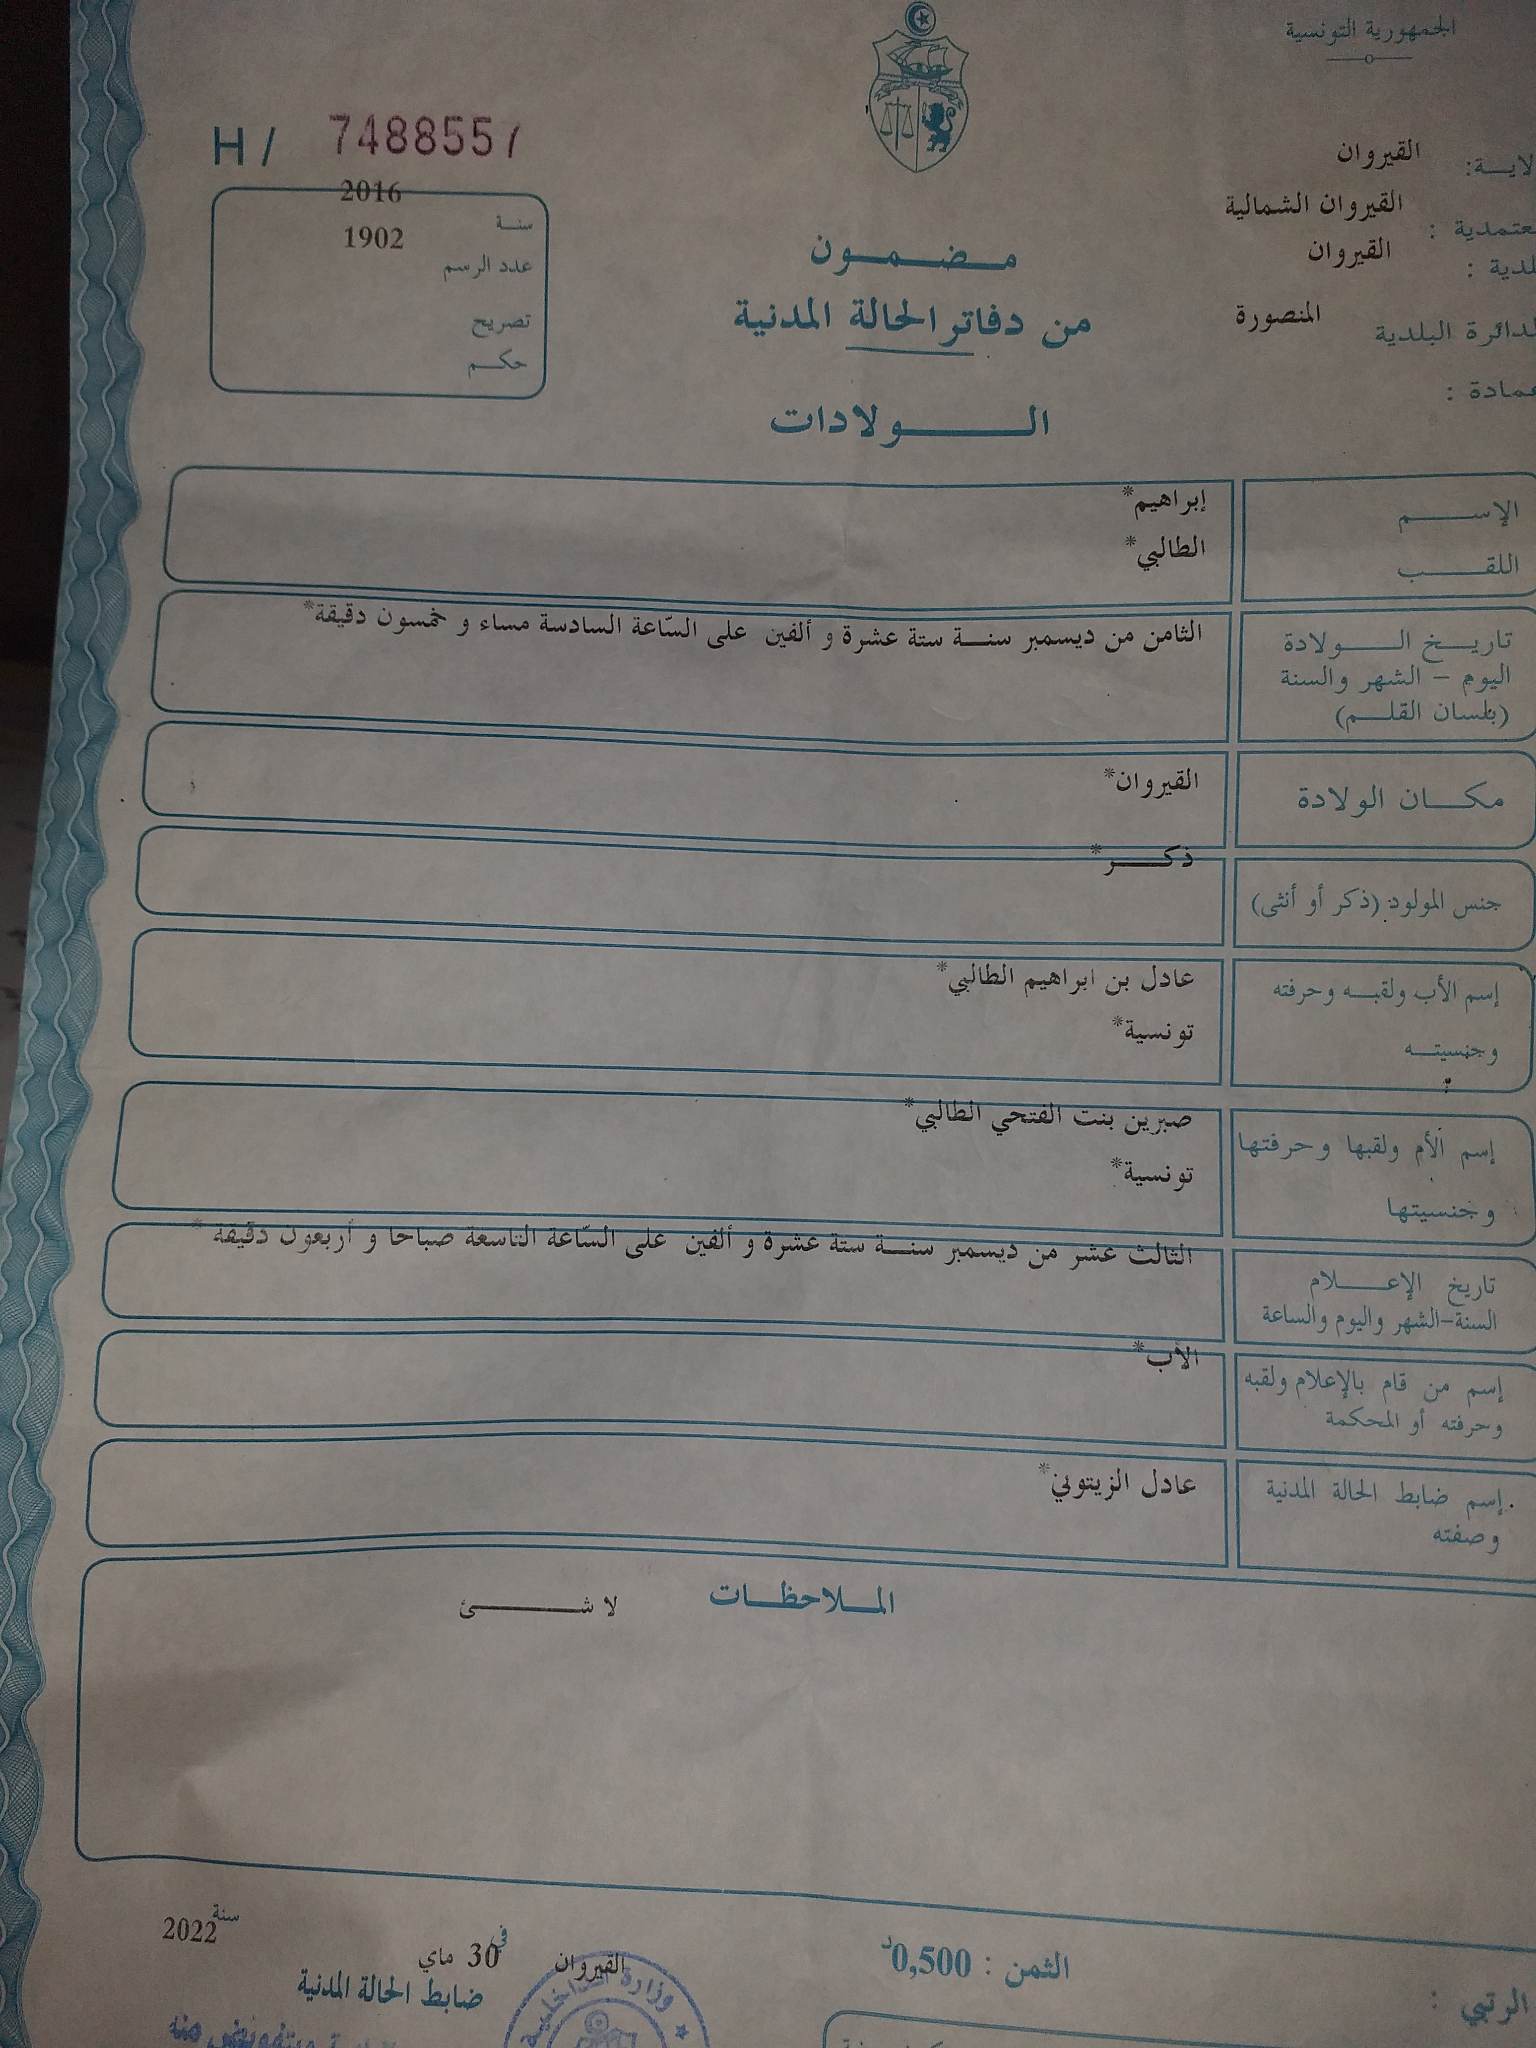 الجمهورية التونسية
H / 7488557
القيروان
القيروان الشمالية
القيروان
الدائرة البلدية المنصورة
2016 سنة
1902 عدد الرسم
تصريح
حكم
مضمون
من دفاتر الحالة المدنية
الولادات
الإسم إبراهيم*
اللقب الطالبي*
تاريخ الولادة
اليوم – الشهر والسنة
(بلسان القلم)
الثامن من ديسمبر سنة ستة عشرة و ألفين على السّاعة السادسة مساء و خمسون دقيقة*
مكان الولادة القيروان*
جنس المولود (ذكر أو أنثى) ذكر*
إسم الأب ولقبه وحرفته عادل بن ابراهيم الطالبي*
وجنسيته تونسية*
إسم الأم ولقبها وحرفتها صبرين بنت الفتحي الطالبي*
وجنسيتها تونسية*
تاريخ الإعلام
السنة-الشهر واليوم والساعة
الثالث عشر من ديسمبر سنة ستة عشرة و ألفين على السّاعة التاسعة صباحا و أربعون دقيقة*
إسم من قام بالإعلام ولقبه
وحرفته أو المحكمة
الأب*
إسم ضابط الحالة المدنية
وصفته
عادل الزيتوني*
الملاحظات لا شئ
القيروان في 30 ماي سنة 2022
ضابط الحالة المدنية
الثمن : 0,500 د
وزارة الداخلية